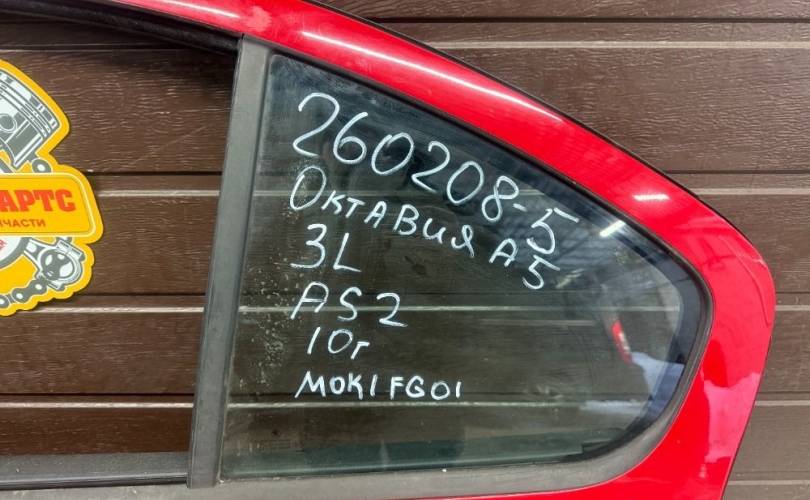 АРТС
ЧАСТИ
260208-5
Октавия А5
3L
AS2
10г
MOK1FG01